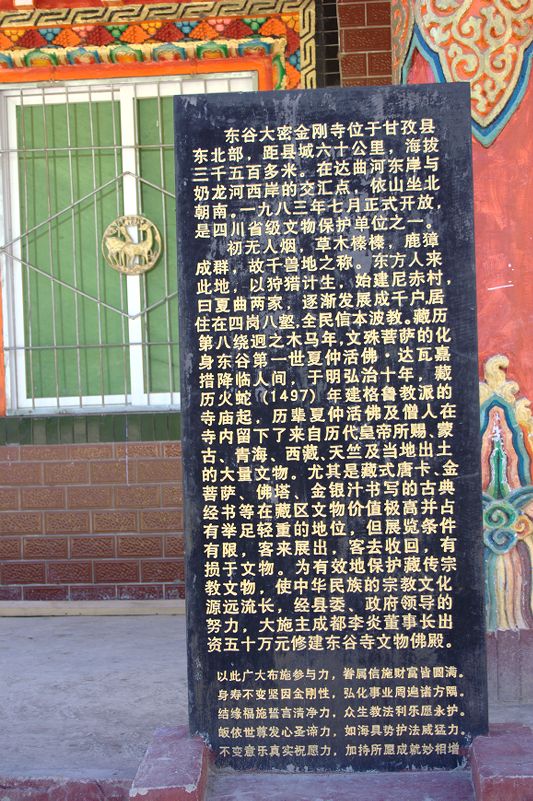 东谷大密金刚寺位于甘孜县
东北部，距县城六十公里，海拔
三千五百多米。在达曲河东岸与
奶龙河西岸的交汇点，依山坐北
朝南。一九八三年七月正式开放，
是四川省级文物保护单位之一。
初无人烟，草木榛榛，鹿獐
成群，故千兽地之称。东方人来
此地，以狩猎计生，始建尼赤村，
曰夏曲两家，逐渐发展成千户,居
住在四岗八壑,全民信本波教。藏历
第八绕迥之木马年,文殊菩萨的化
身东谷第一世夏仲活佛·达瓦嘉
措降临人间，于明弘治十年，藏
历火蛇（1497）年建格鲁教派的
寺庙起，历辈夏仲活佛及僧人在
寺内留下了来自历代皇帝所赐、蒙
古、青海、西藏、天竺及当地出土
的大量文物。尤其是藏式唐卡、金
菩萨、佛塔、金银汁书写的古典
经书等在藏区文物价值极高并占
有举足轻重的地位。但展览条件
有限，客来展出，客去收回，有
损于文物。为有效地保护藏传宗
教文物，使中华民族的宗教文化
源远流长，经县委、政府领导的
努力，大施主成都李炎董事长出
资五十万元修建东谷寺文物佛殿。
以此广大布施参与力，眷属信施财富皆圆满。
身寿不变坚因金刚性，弘化事业周遍诸方隅。
结缘福施誓言清净力，众生教法利乐愿永护。
皈依世尊发心圣谛力，如海具势护法威猛力。
不变意乐真实祝愿力，加持所愿成就妙相增